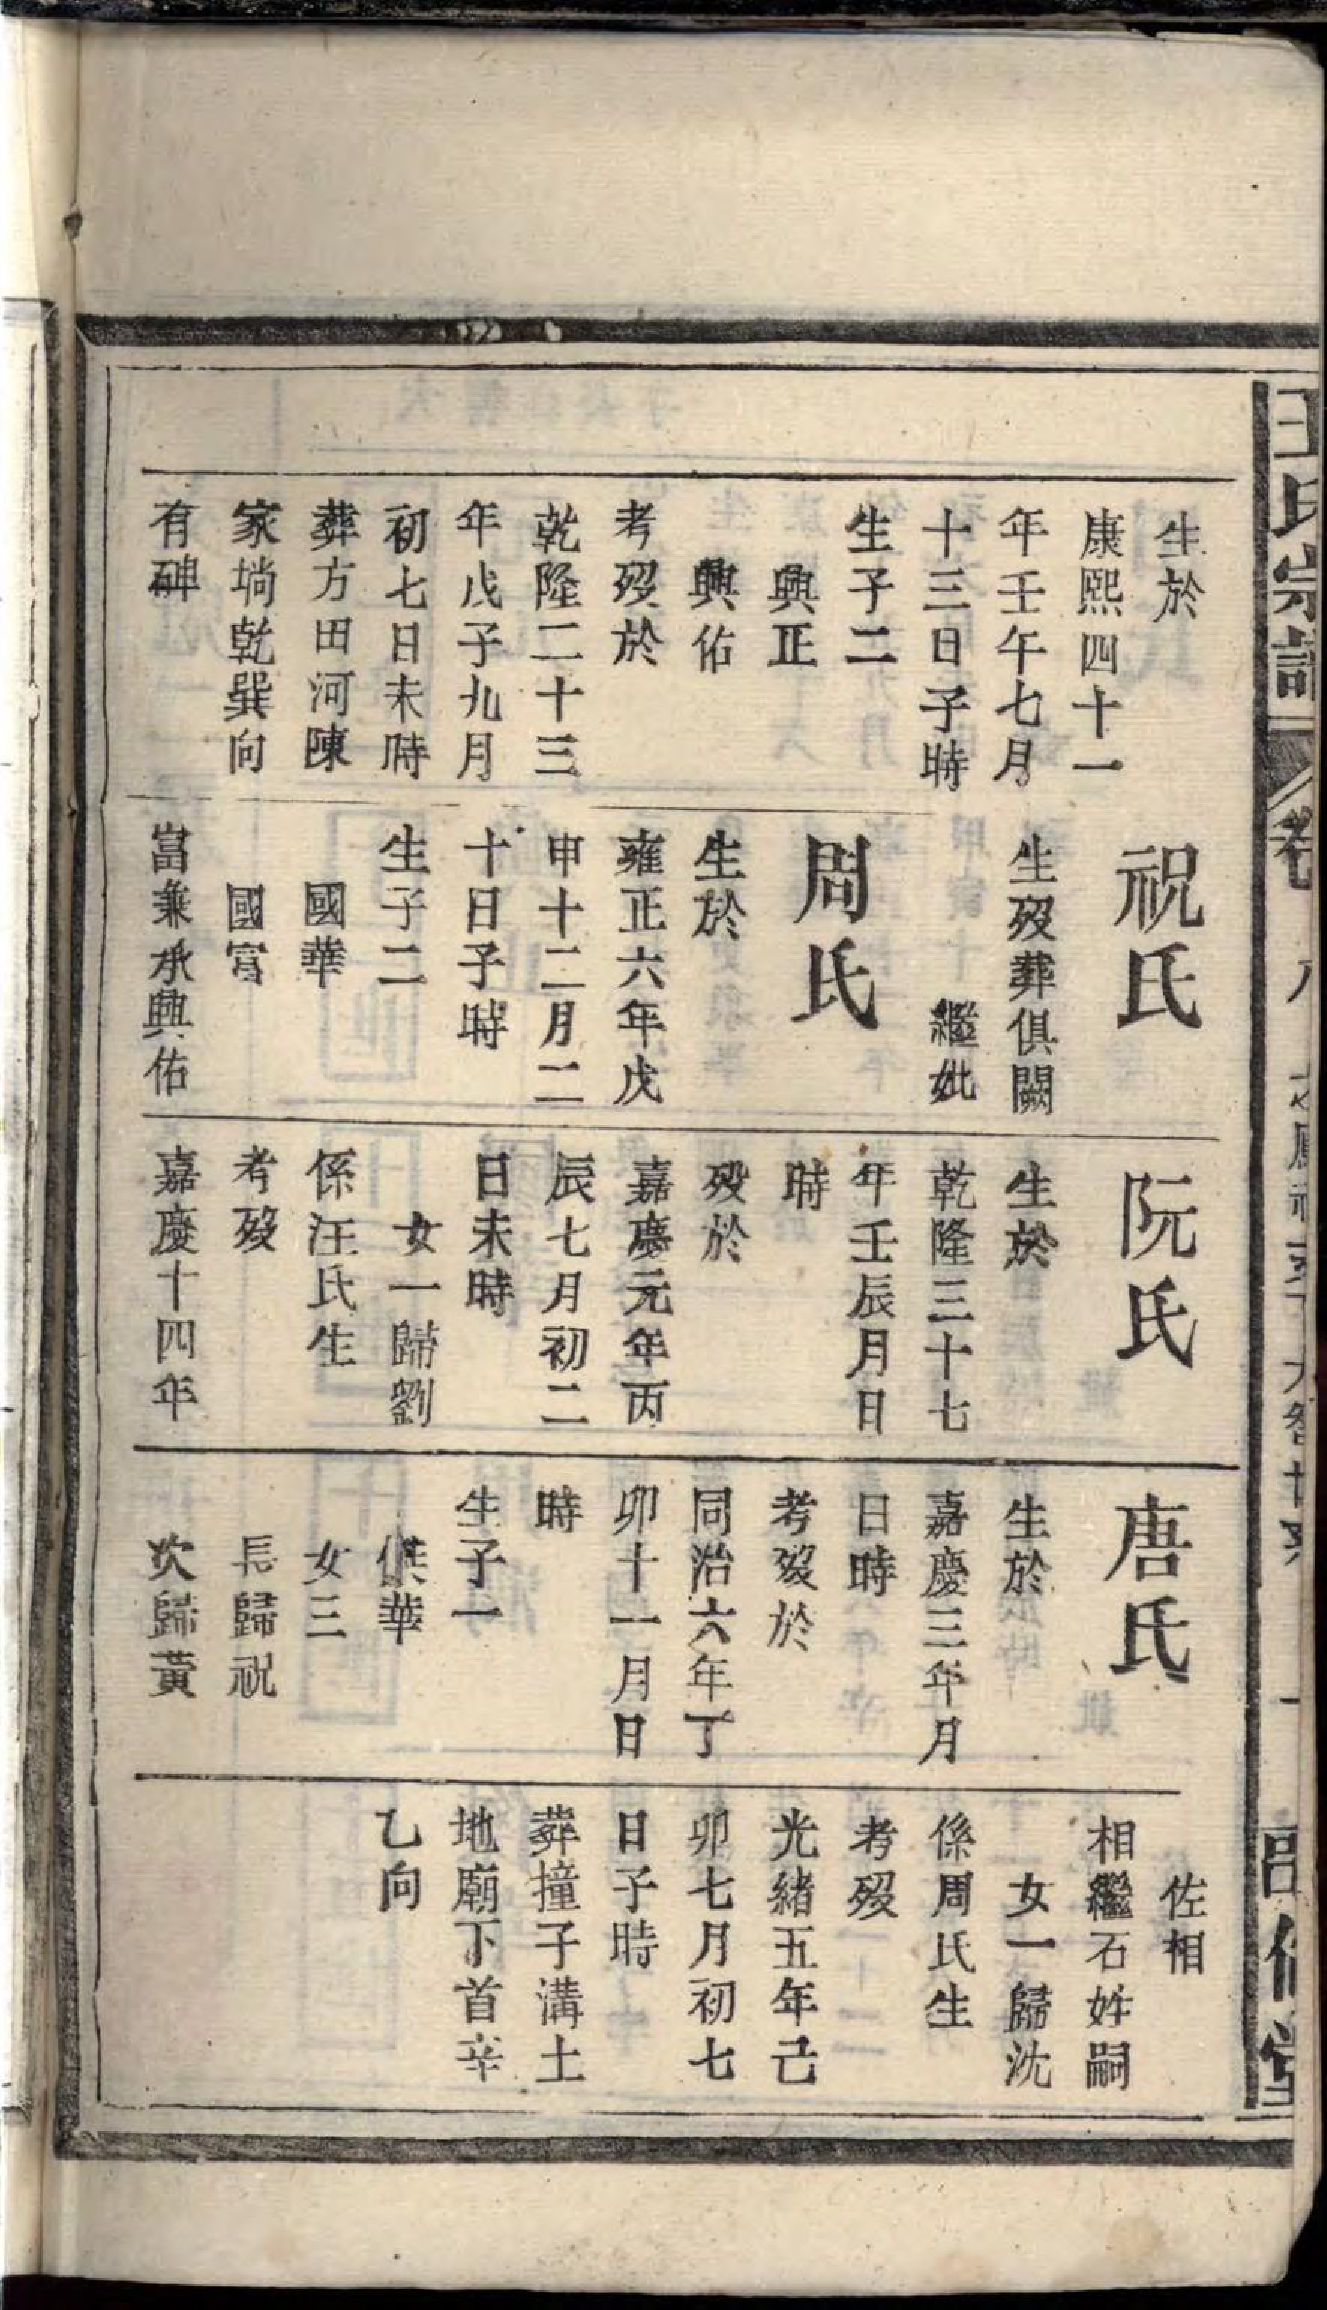 王氏宗譜
卷七
生於
康熙四十一
年壬午七月
十三日子時
生子二
興正
興佑
考歿於
乾隆二十三
年戊子九月
初七日未時
葬方田河陳
家埫乾巽向
有碑
祝氏
生歿葬俱闕
繼妣
周氏
生於
雍正六年戊
申十二月二
十日子時
生子二
國華
國富
富兼承興佑
阮氏
生於
乾隆三十七
年壬辰月日
時
歿於
嘉慶元年丙
辰七月初二
日未時
女一歸劉
係汪氏生
考歿
嘉慶十四年
唐氏
生於
嘉慶三年月
日時
考歿於
同治六年丁
卯十一月日
時
生子一
供華
女三
長歸祝
次歸黃
佐相
相繼石姓嗣
女一歸沈
係周氏生
考歿
光緒五年己
卯七月初七
日子時
葬撞子溝土
地廟下首辛
乙向